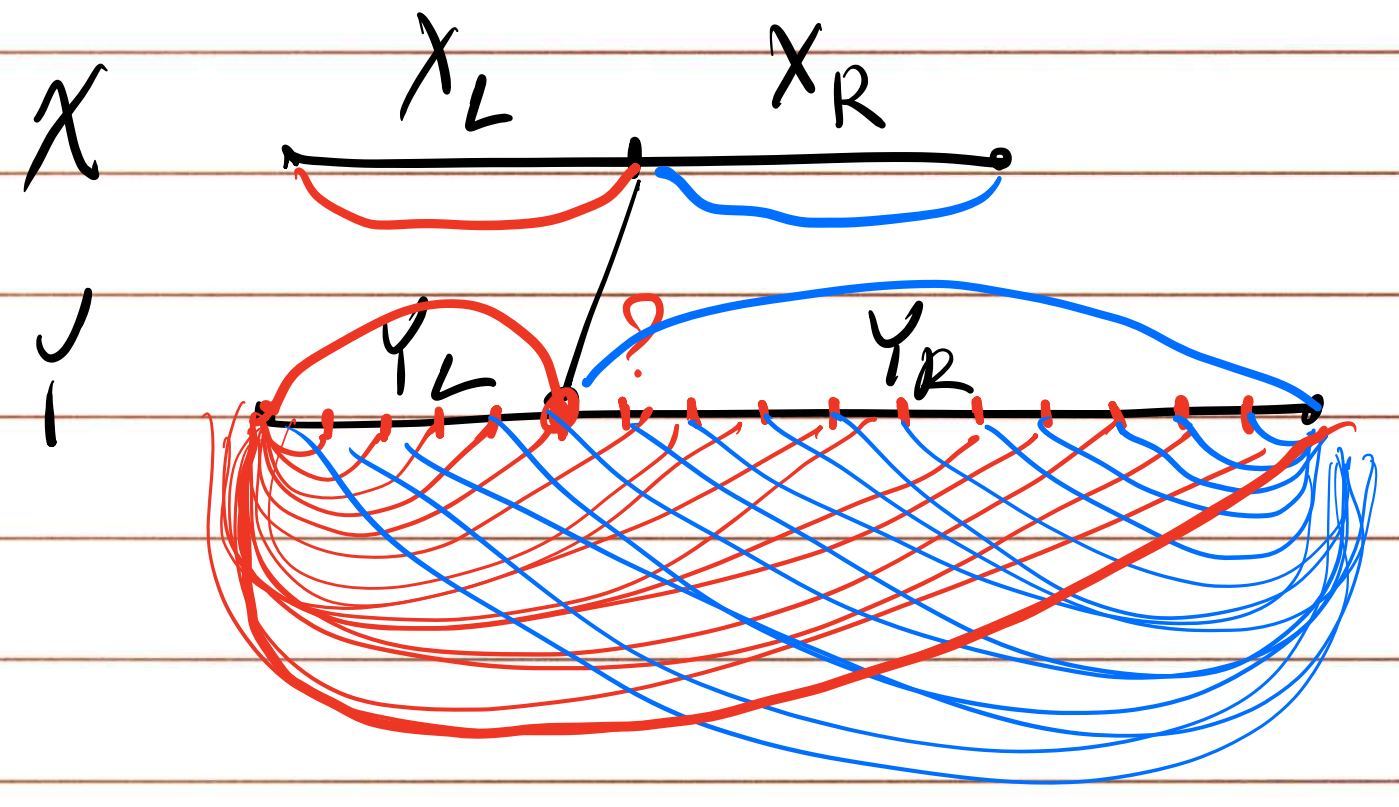 X X_L X_R
Y Y_L ? Y_R